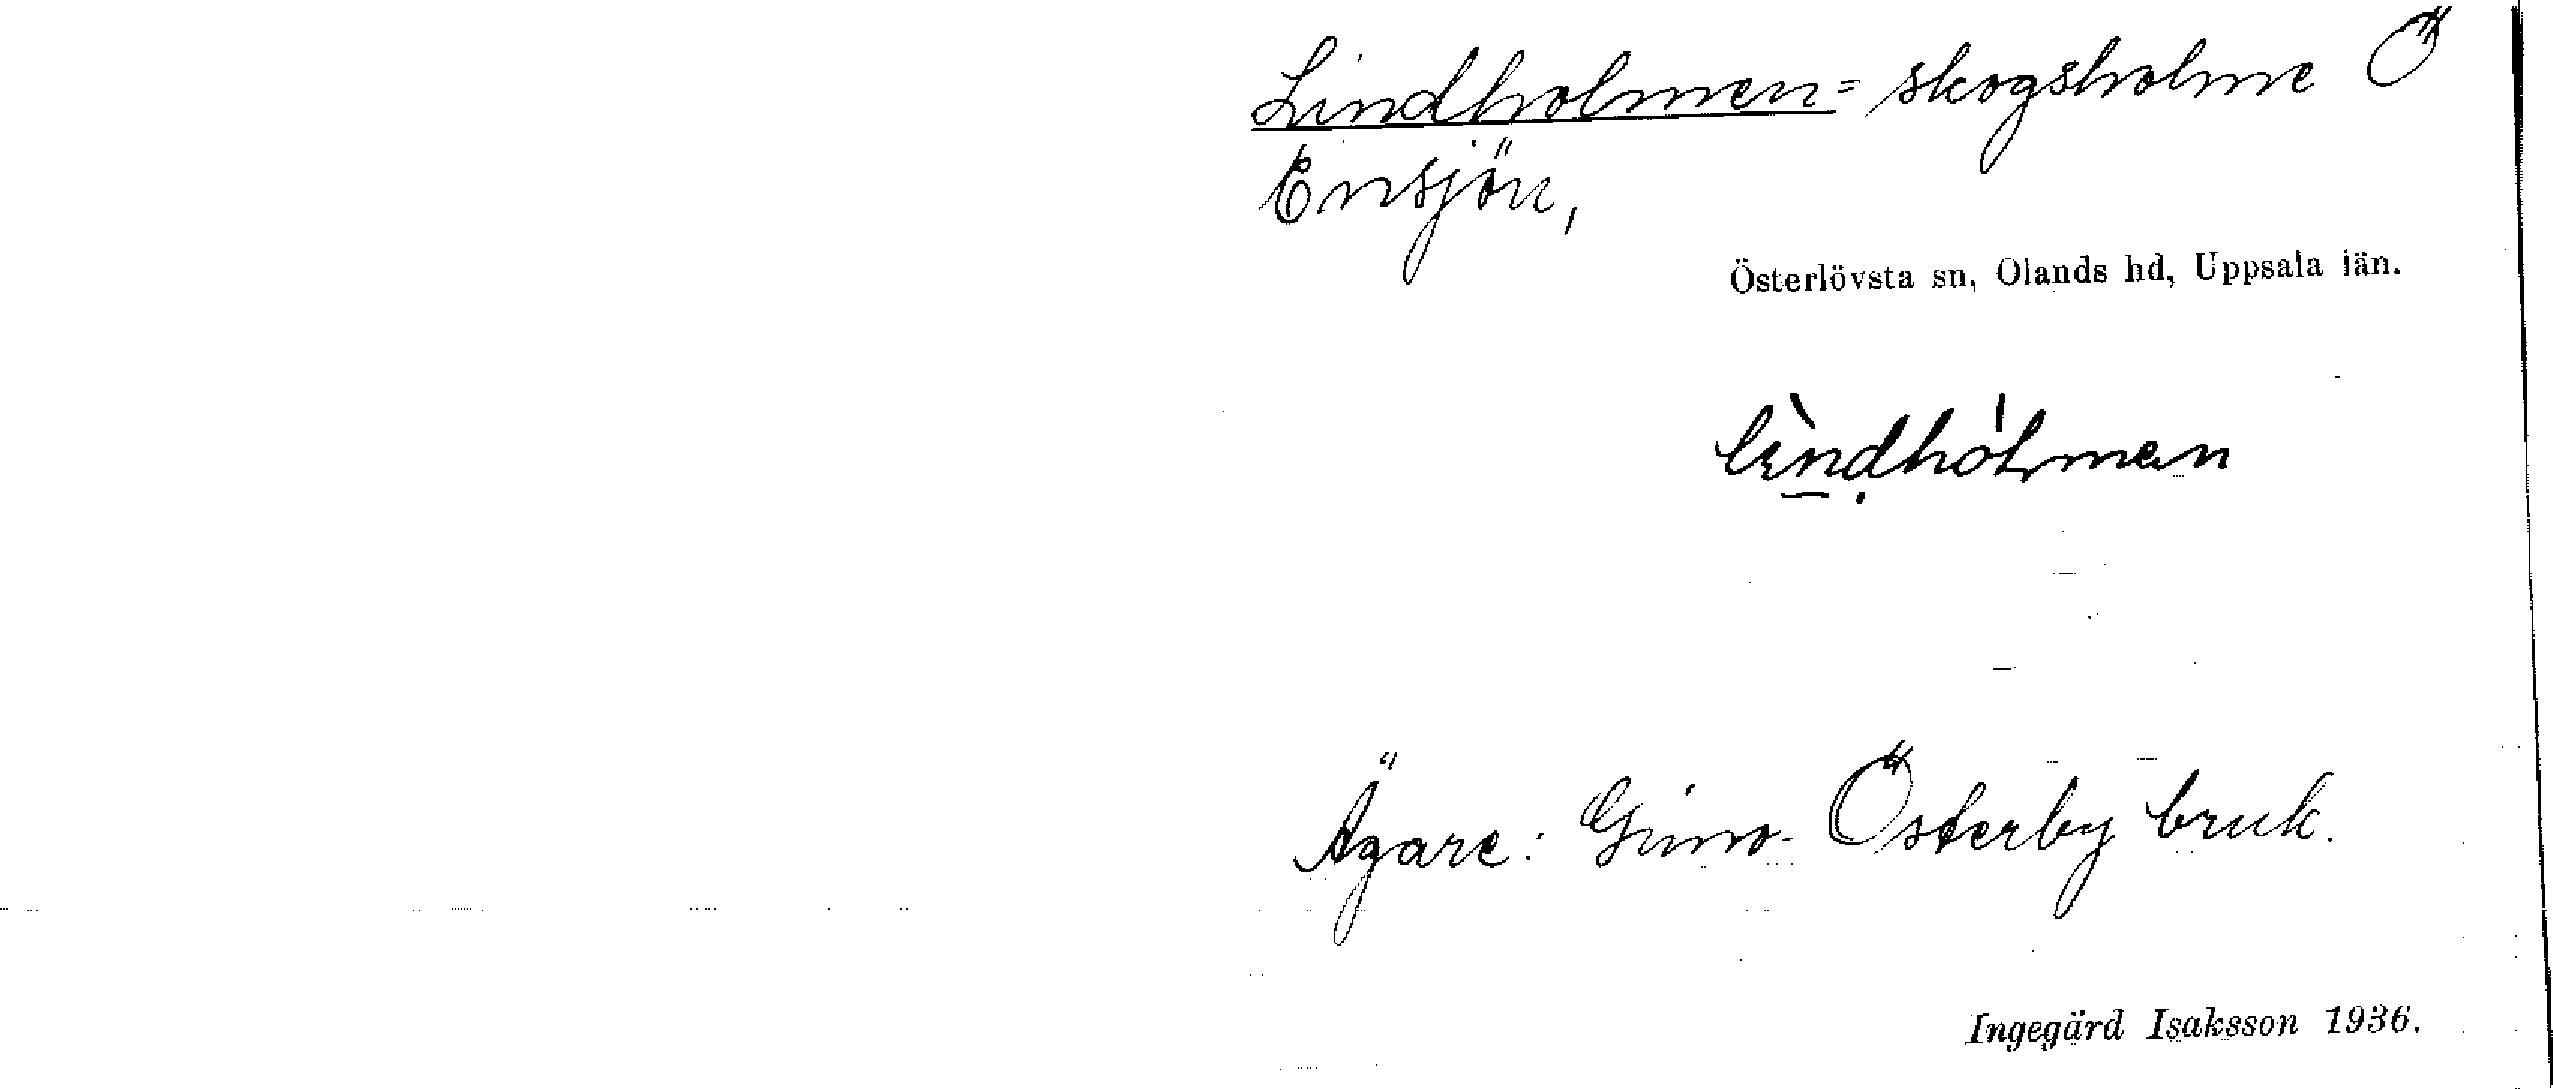 Lindholmen = skogsholme Ö
Ensjön,
Österlövsta sn, Olands hd, Uppsala län.
lìndhólmen
Ägare: Gimo-Österby bruk.
Ingegärd Isaksson 1936.